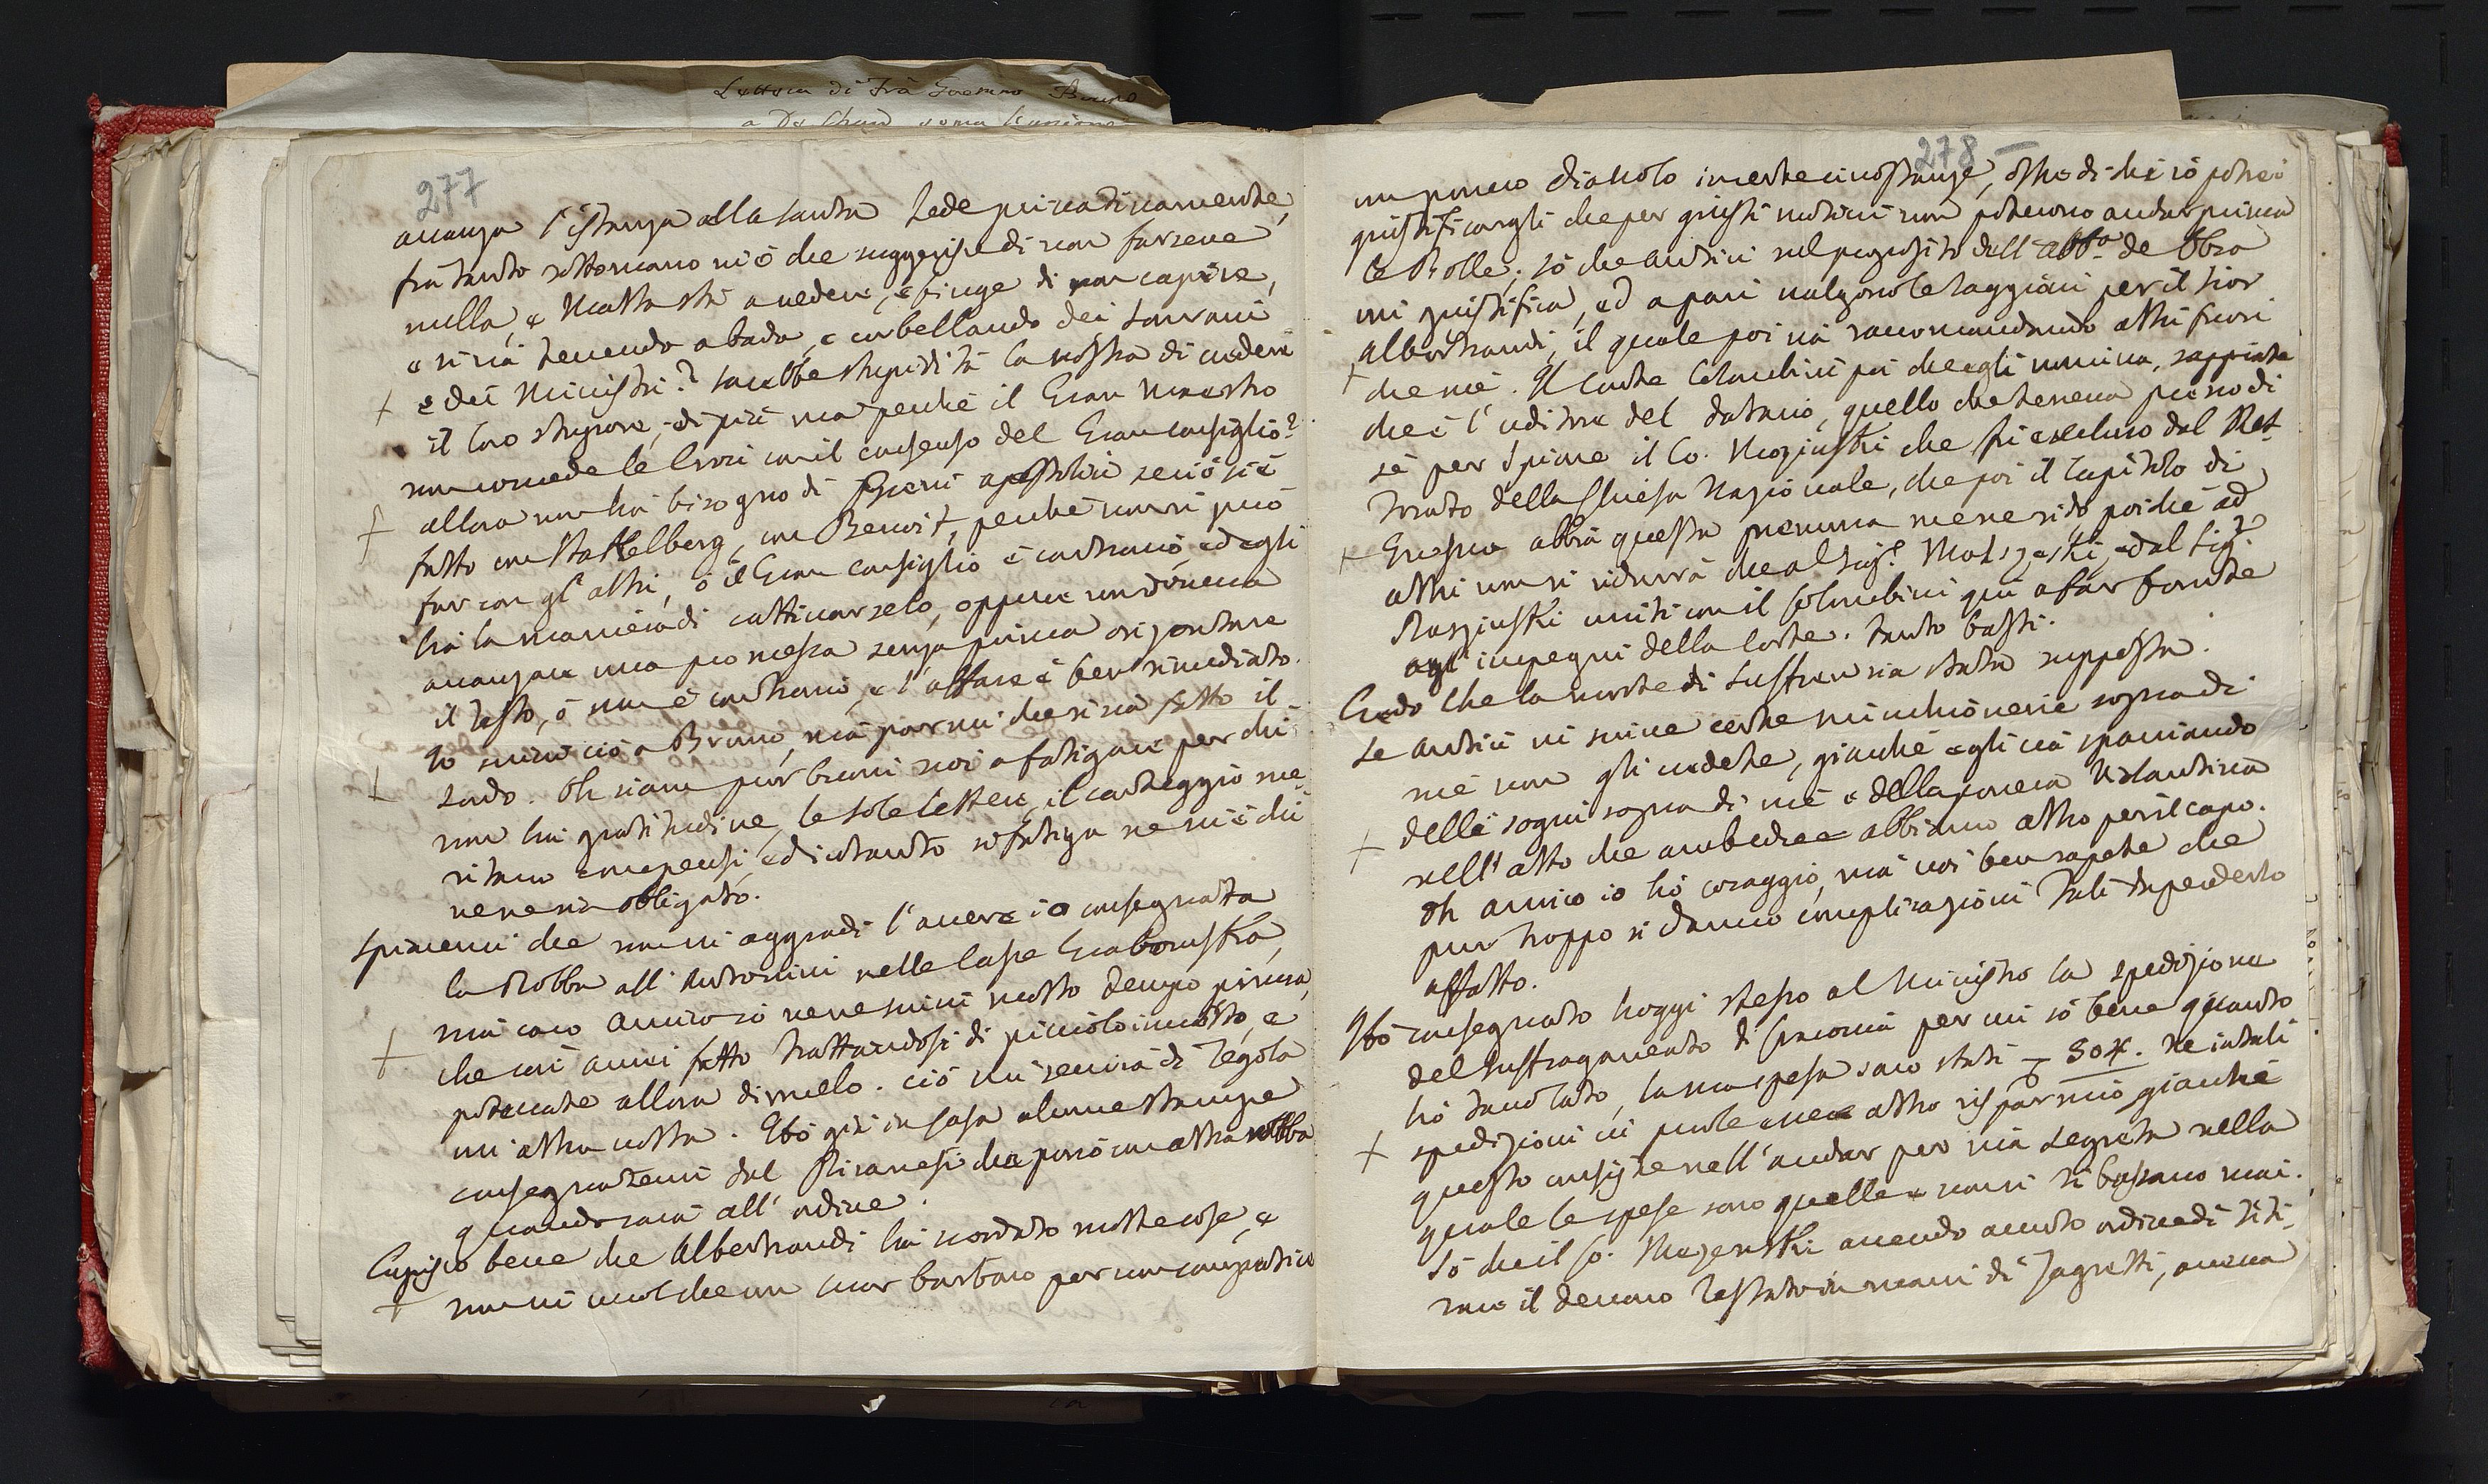 Lettera di Frà Gaetano Bruno
277
avanza l'istanza alla santa Sede privativamente,
fra tanto sottomano vi è che suggerisce di non farsene
nulla, e Malta stà a vedere, e finge di non capire,
e si và tenendo a bada, e corbellando dei Sovrani
e dei Ministri? sarebbe stupidità la nostra di credere
il loro stupore, di più ma perchè il Gran Maestro
non concede le Croci con il consenso del Gran consiglio?
allora non hà bisogno di Brevi apostolici se ciò si è
fatto con Stakelberg, con Benoit, perchè non si può
far con gl'altri, ò il Gran Consiglio è contrario, ed egli
hà la maniera di cattivarselo, oppure non doveva
avanzare una promessa senza prima
il testo, ò non è contrario, e l'affare è ben rimediato.
Io scrivo ciò a Bruno, mà parmi che si sia fatto il
sordo. Oh siamo pur buoni noi a fatigare per chi
non hà gratitudine, le sole lettere, il carteggio me-
ritano compensi, ed intanto si fatiga ne vi è chi
ve ne sia obligato.
Spiacemi che non vi aggradi l'avere io consegnata
la Robba all'Antonini nelle Casse Grabowska,
mà caro amico io ve ne scrissi molto tempo prima,
che così avrei fatto trattandosi di picciolo involto, e
potevate allora dirmelo. Ciò mi servirà di regola
un'altra volta. Hò già in casa alcune stampe
consegnatemi dal Piranesi che però con altra robba
quando sarà all'ordine.
Capisco bene che Albertrandi hà scordato molte cose, e
non vi vuol che un cuor barbaro per non compatire
278
un povero diavolo in certe circostanze, oltre di che io potrei
giustificargli che per giusti motivi non potevono andar prima
le Bolle; sò che Antici sul proposito dell'Abb.e de Obra
mi giustifica, ed a pari valgono le raggioni per il Sior
Albertrandi, il quale poi và raccomandando altri fuori
che mè. Il Conte Colombini poi che egli nomina, sappiate
che è l'uditore del Datario, quello che teneva pieno di
sè per Spione il Co. Mozinski che fù escluso dal Ret-
torato della Chiesa Nazionale, che poi il Capitolo di
Gnesna abbia questa premura me ne rido, poichè ad
altri non si ridurrà che al Sig.r e dal Sig.r
Roszinski uniti con il Colombini qui a far fronte
agl'impegni della Corte. tanto basti.
Credo che la morte di sia stata supposta.
Se Antici vi scrive certe minchionerie sopra di
mè non gli credete, giacchè egli và spacciando
delli sogni sopra di mè e della povera Valentina
nell'atto che ambedue abbiamo altro per il capo.
Oh amico io hò coraggio, mà voi ben sapete che
pur troppo si danno complicazioni tali da perderlo
affatto.
Hò consegnato hoggi stesso al Ministro la spedizione
del Suffraganeato di Cracovia per cui sò bene quanto
hò tarolato, la ma spesa sono stati 30#. Ne in tali
spedizioni vi puole avere altro risparmio giacchè
questo consiste nell'andar per via segreta nella
quale le spese sono quelle e non si ribassano mai.
Sò che il Co. avendo avuto ordine di riti-
rare il denaro restato in mani di Zagretti, aveva